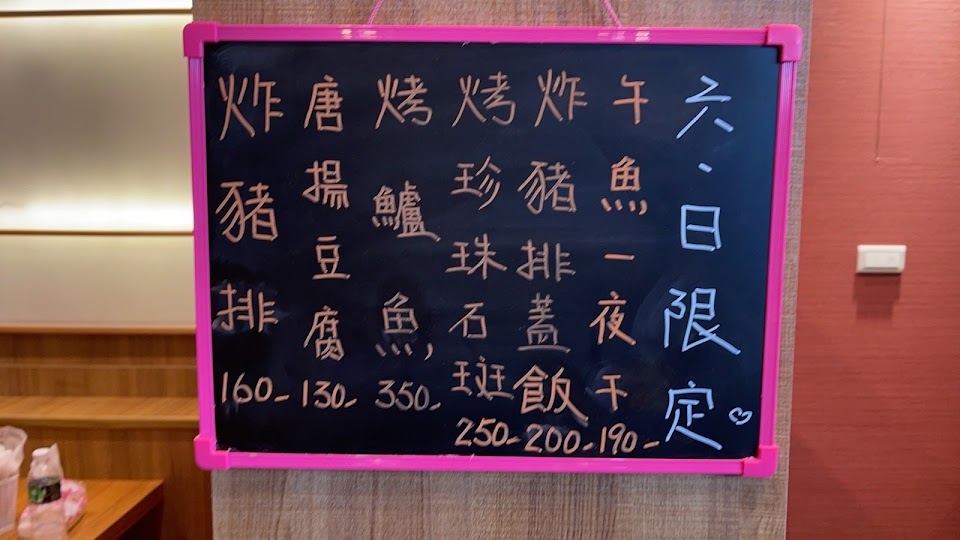 六、日限定
午魚一夜干
190-
炸豬排蓋飯
200-
烤珍珠石斑
250-
烤鱸魚
350-
唐揚豆腐
130-
炸豬排
160-